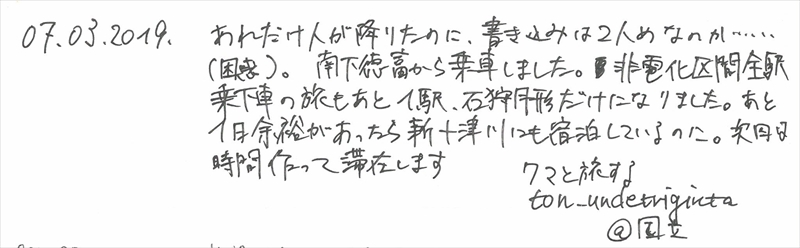 07.03.2019. あれだけ人が降りたのに、書き込みは2人めなのか……
(困惑)。南下徳富から乗車しました。非電化区間全駅
乗下車の旅もあと1駅、石狩月形だけになりました。あと
1日余裕があったら新十津川にも宿泊しているのに。次回は
時間作って滞在します
クマと旅する
ton_undetriginta
@国立